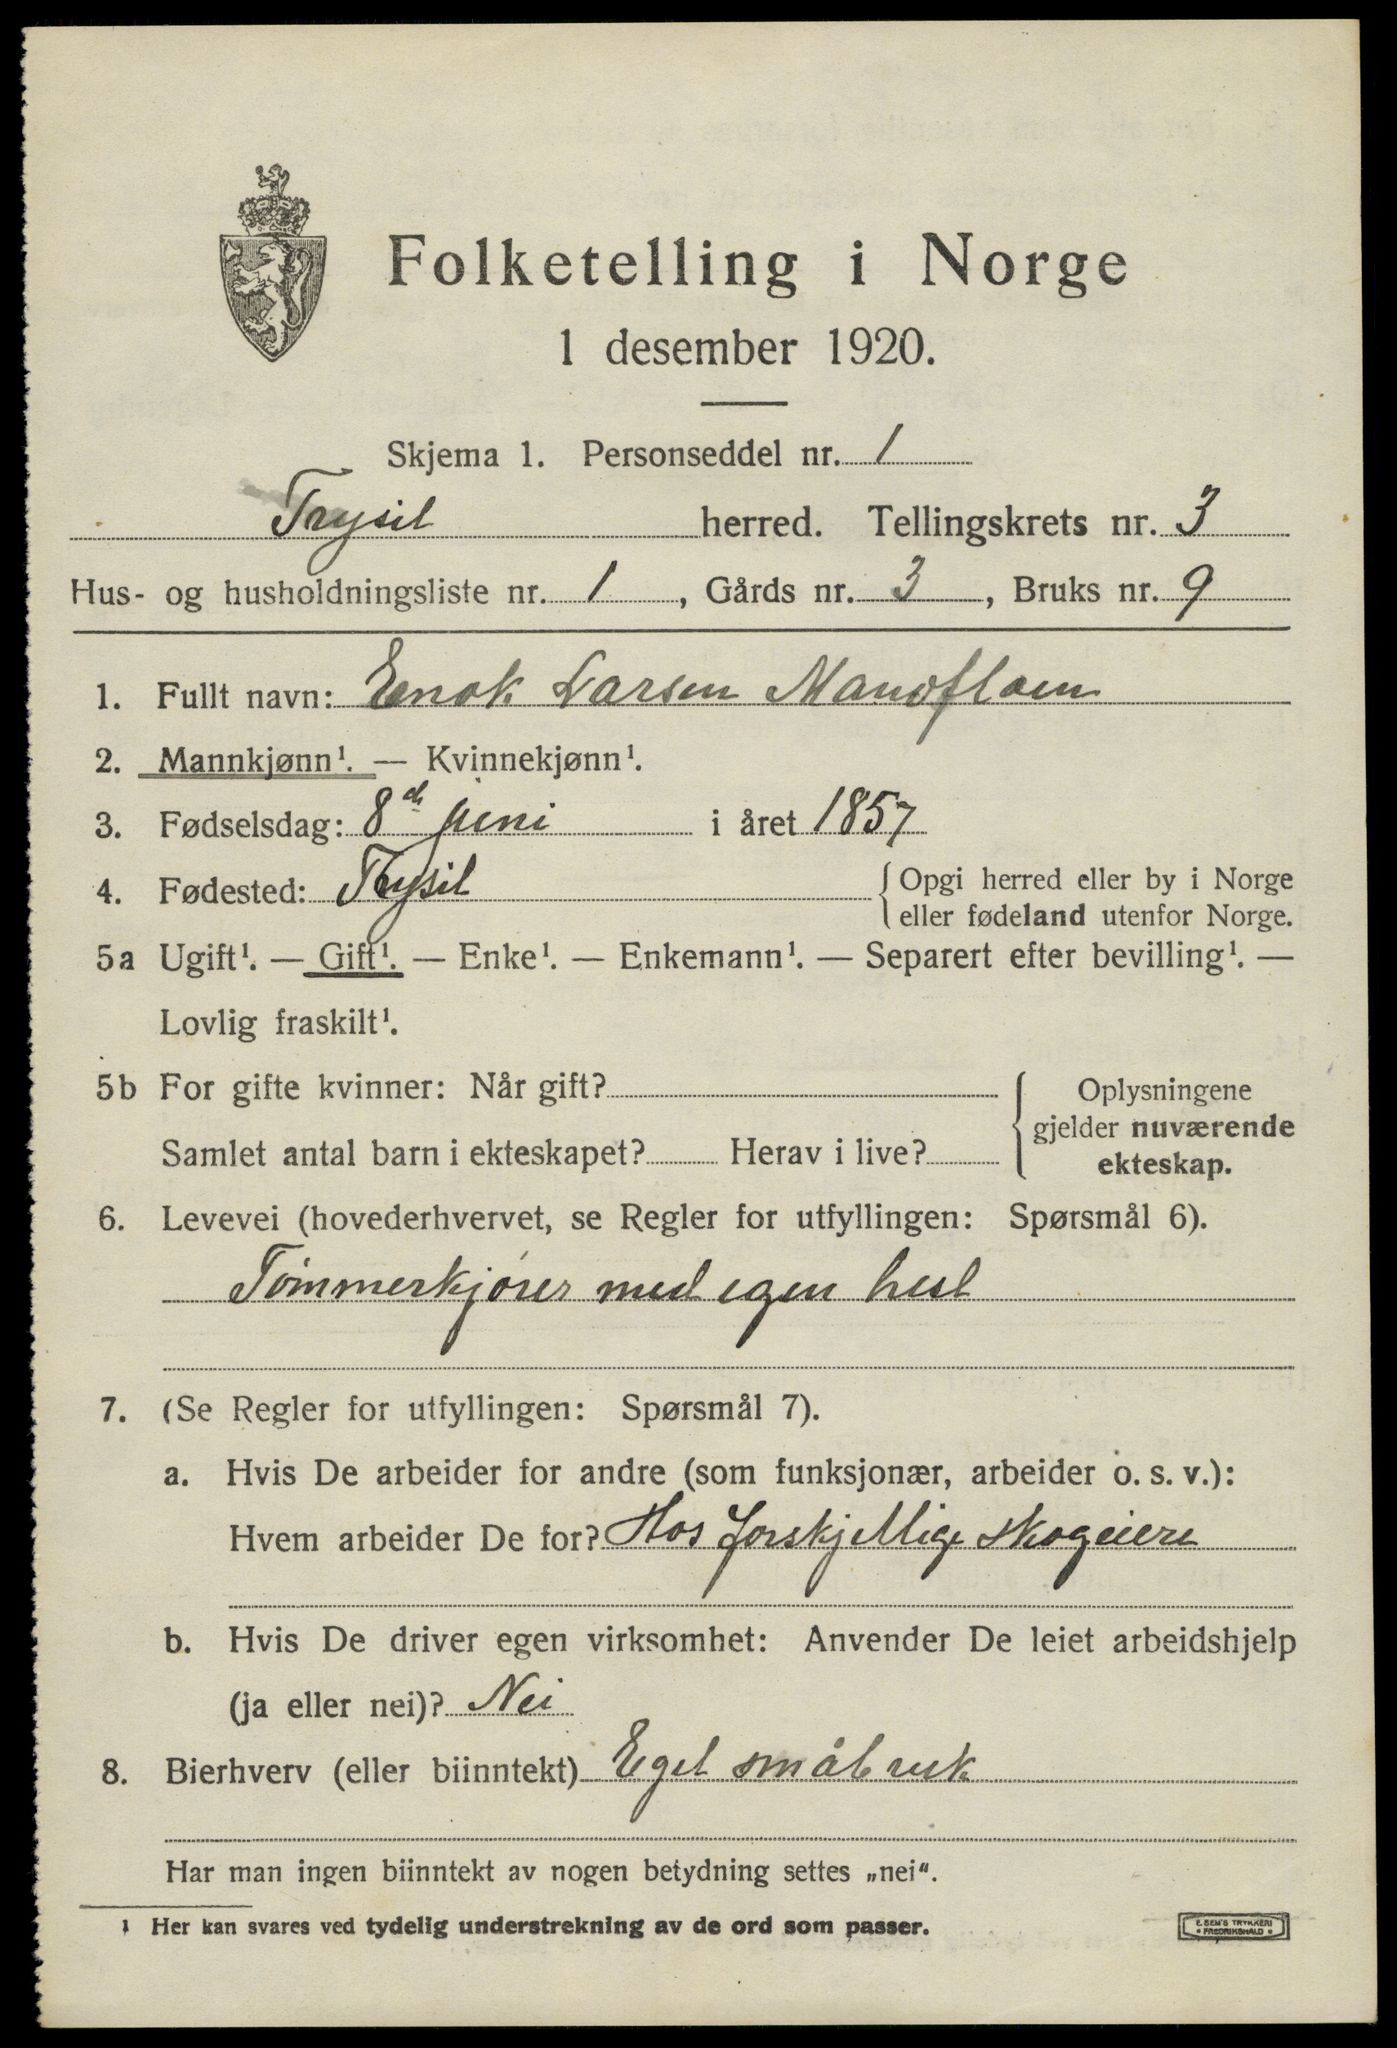 Folketelling i Norge
1 desember 1920.
Skjema 1. Personseddel nr. 1
Trysil herred. Tellingskrets nr. 3
Hus- og husholdningsliste nr. 1, Gårds nr. 3, Bruks nr. 9
1. Fullt navn: Enok Larsen
2. Mannkjønn¹. — Kvinnekjønn¹.
3. Fødselsdag: 8de juni i året 1857
4. Fødested: Trysil { Opgi herred eller by i Norge
eller fødeland utenfor Norge.
5a Ugift¹. — Gift¹. — Enke¹. — Enkemann¹. — Separert efter bevilling¹. —
Lovlig fraskilt¹.
5b For gifte kvinner: Når gift?
Samlet antal barn i ekteskapet? Herav i live?
Oplysningene
gjelder nuværende
ekteskap.
6. Levevei (hovederhvervet, se Regler for utfyllingen: Spørsmål 6).
Tømmerkjører med egen hest
7. (Se Regler for utfyllingen: Spørsmål 7).
a. Hvis De arbeider for andre (som funksjonær, arbeider o. s. v.):
Hvem arbeider De for? Hos forskjellige skogeiere
b. Hvis De driver egen virksomhet: Anvender De leiet arbeidshjelp
(ja eller nei)? Nei
8. Bierhverv (eller biinntekt) Eget småbruk
Har man ingen biinntekt av nogen betydning settes „nei“.
¹ Her kan svares ved tydelig understrekning av de ord som passer.
E. SEM'S TRYKKERI
• FREDRIKSHALD •